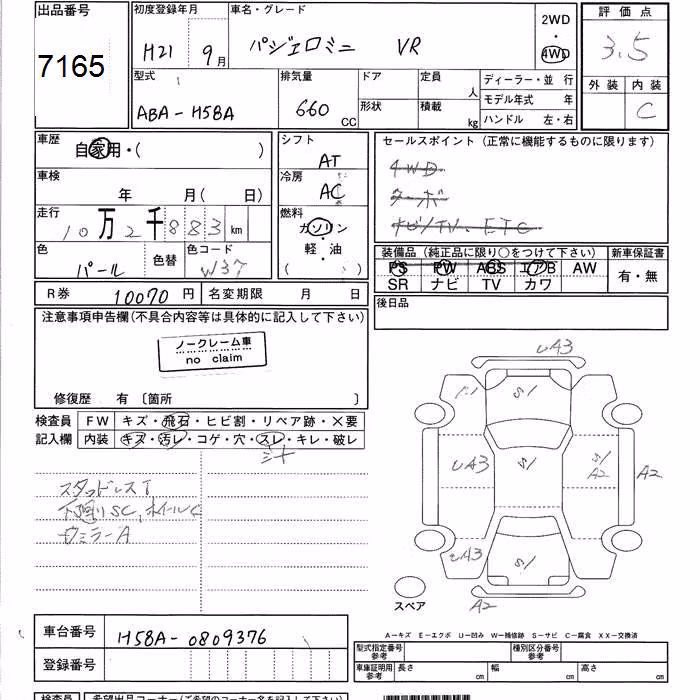 出品番号
7165
初度登録年月
H21 9月
車名・グレード
パジェロミニ VR
2WD
4WD
評価点
3.5
外装 内装
C
型式
ABA-H58A
排気量
660 CC
ドア
形状
定員 人
積載 kg
ディーラー・並 行
モデル年式 年
ハンドル 左・右
車歴
自家用・( )
車検
年 月( 日)
走行
10万2千883km
色
パール
色替
色コード
W37
シフト
AT
冷房
AC
燃料
ガソリン
軽・油
( )
セールスポイント(正常に機能するものに限ります)
4WD
ターボ
ナビ/TV. ETC
装備品(純正品に限り○をつけて下さい)
PS PW ABS エアB AW
SR ナビ TV カワ
新車保証書
有・無
R券 10070円
名変期限 月 日
後日品
注意事項申告欄(不具合内容等は具体的に記入して下さい)
ノークレーム車
no claim
修復歴 有 〔箇所 〕
検査員
記入欄
FW キズ・飛石・ヒビ割・リペア跡・×要
内装 キズ・汚レ・コゲ・穴・スレ・キレ・破レ
スタッドレスT
下廻りSC、ホイールC
ミラーA
UA3
S/
UA3
S/
S/
A2
A2
UA3
S/
A2
スペア
A-キズ E-エクボ U-凹み W-補修跡 S-サビ C-腐食 XX-交換済
車台番号 H58A-0809376
登録番号
型式指定番号
参考
種別区分番号
参考
車庫証明用
参考
長さ cm
幅 cm
高さ cm
検査員
希望出品コーナー(ご希望のコーナー名を記入下さい)